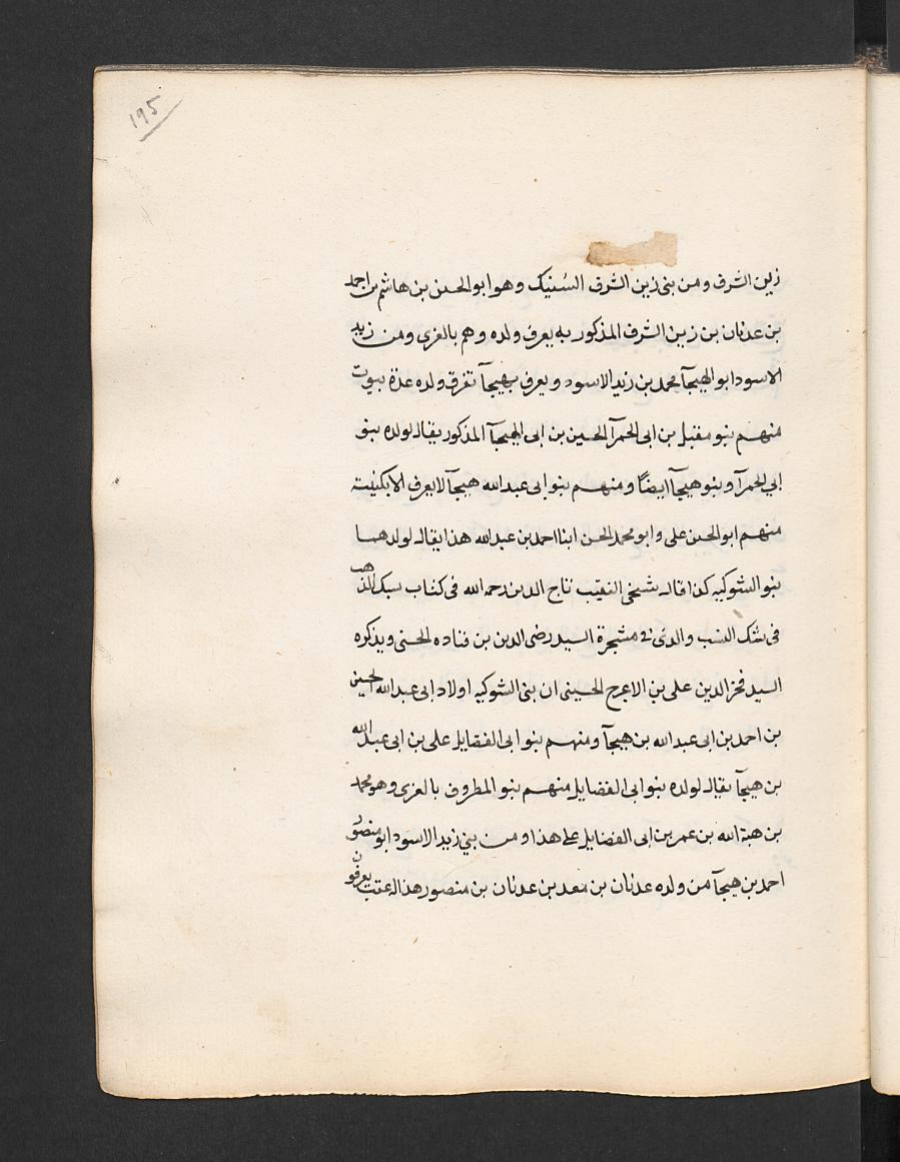 195
زين الشرف ومن بنى زين الشرف السُنيك وهو ابو الحسن بن هاشم بن احمد
بن عدنان بن زين الشرف المذكور به يعرف ولده وهم بالغرى ومن زيد
الاسود ابو الهيجآ محمد بن زيد الاسود ويعرف بهيجآ تفرق ولده عدة بيوت
منهم بنو مقبل بن ابى الحمرآ الحسين بن ابى الهيجآ المذكور يقال لولده بنو
ابي الحمرآ وبنو هيجآ ايضًا ومنهم بنو ابى عبدالله هيجآ لا يعرف الا بكنيته
منهم ابو الحسن على وابو محمد الحسن ابنا احمد بن عبدالله هذا يقال لولدهما
بنو الشوكيه كذا قاله شيخى النقيب تاج الدين رحمه الله فى كتاب سبك الذهب
فى شبك النسب والذى فى مشجرة السيد رضى الدين بن قناده الحسنى ويذكره
السيد فخر الدين على بن الاعرج الحسينى ان بنى الشوكيه اولاد ابى عبدالله الحسين
بن احمد بن ابى عبد الله بن هيجآ ومنهم بنو ابى الفضايل على بن ابى عبدالله
بن هيجآ يقال لولده بنو ابى الفضايل منهم بنو المطروف بالغرى وهو محمد
بن هبة الله بن عمر بن ابى الفضايل على هذا ومن بني زيد الاسود ابو منصور
احمد بن هيجآ من ولده عدنان بن معد بن عدنان بن منصور هذا له عقب يعرفون